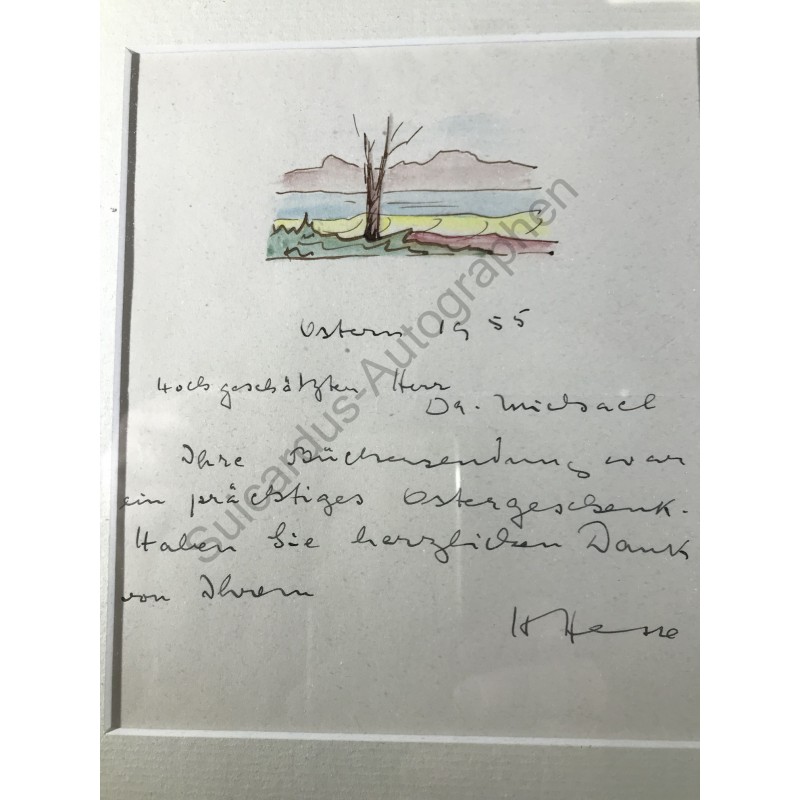 Ostern 1955
Hochgeschätzten Herr
Dr. Michael
Ihre Büchersendung war
ein prächtiges Ostergeschenk.
Haben Sie herzlichen Dank
von Ihrem
H Hesse
Suicardus-Autographen